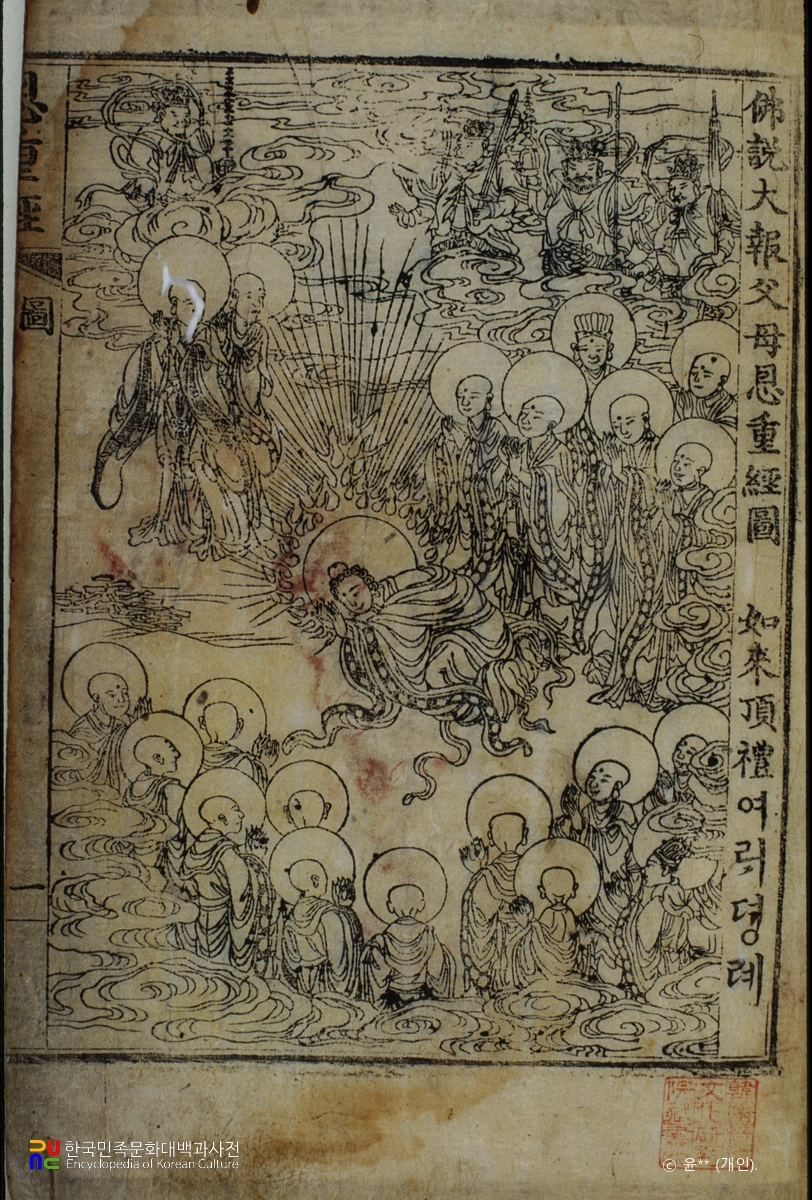 佛説大報父母恩重經圖 如來頂禮여릭뎡례
恩重經
圖
一
한국민족문화대백과사전
Encyclopedia of Korean Culture
© 윤** (개인).